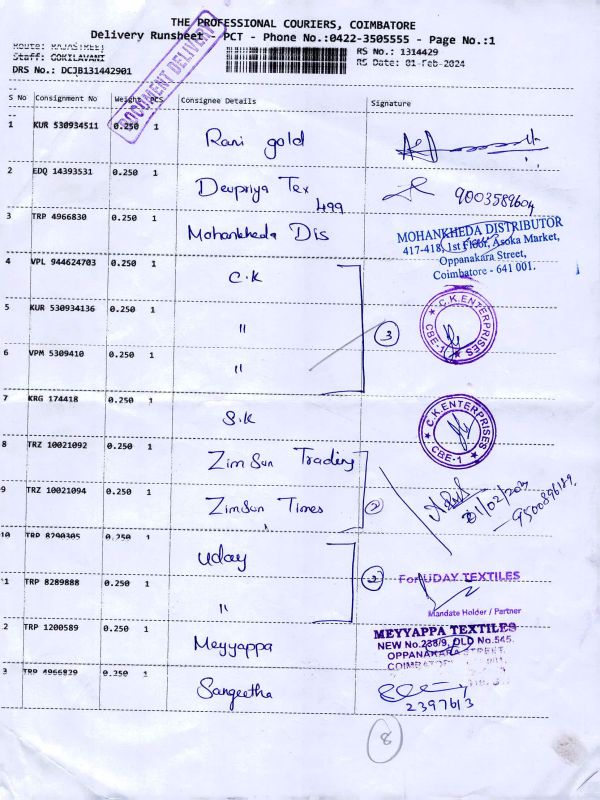 THE PROFESSIONAL COURIERS, COIMBATORE
Delivery Runsheet - PCT - Phone No.:0422-3505555 - Page No.:1
Route: RAJASTREET
Staff: GOKILAVANI
DRS No.: DCJB131442901
RS No.: 1314429
RS Date: 01-Feb-2024
DOCUMENT DELIVERY
S No Consignment No Weight PCS Consignee Details Signature
1 KUR 530934511 0.250 1 Rani gold
2 EDQ 14393531 0.250 1 Devpriya Tex 499 9003589604
3 TRP 4966830 0.250 1 Mohankheda Dis
MOHANKHEDA DISTRIBUTOR
417-418, 1st Floor, Asoka Market,
Oppanakara Street,
Coimbatore - 641 001.
4 VPL 944624703 0.250 1 C.K
5 KUR 530934136 0.250 1 "
3
C.K.ENTERPRISES
CBE-1
6 VPM 5309410 0.250 1 "
7 KRG 174418 0.250 1 S.K
C.K.ENTERPRISES
CBE-1
8 TRZ 10021092 0.250 1 Zim Sun Trading
9 TRZ 10021094 0.250 1 ZimSun Times
2
10 TRP 8290305 0.250 1 Uday
1 TRP 8289888 0.250 1 "
2
For UDAY TEXTILES
Mandate Holder / Partner
2 TRP 1200589 0.250 1 Meyyappa
MEYYAPPA TEXTILES
NEW No.288/9, OLD No.545,
OPPANAKARA STREET,
3 TRP 4966829 0.250 1 Sangeetha
2397613
8